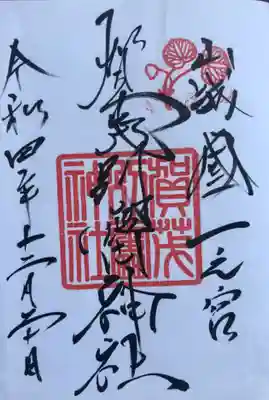 山城國一之宮
賀茂別雷神社
令和四年十二月
賀茂
別雷
神社